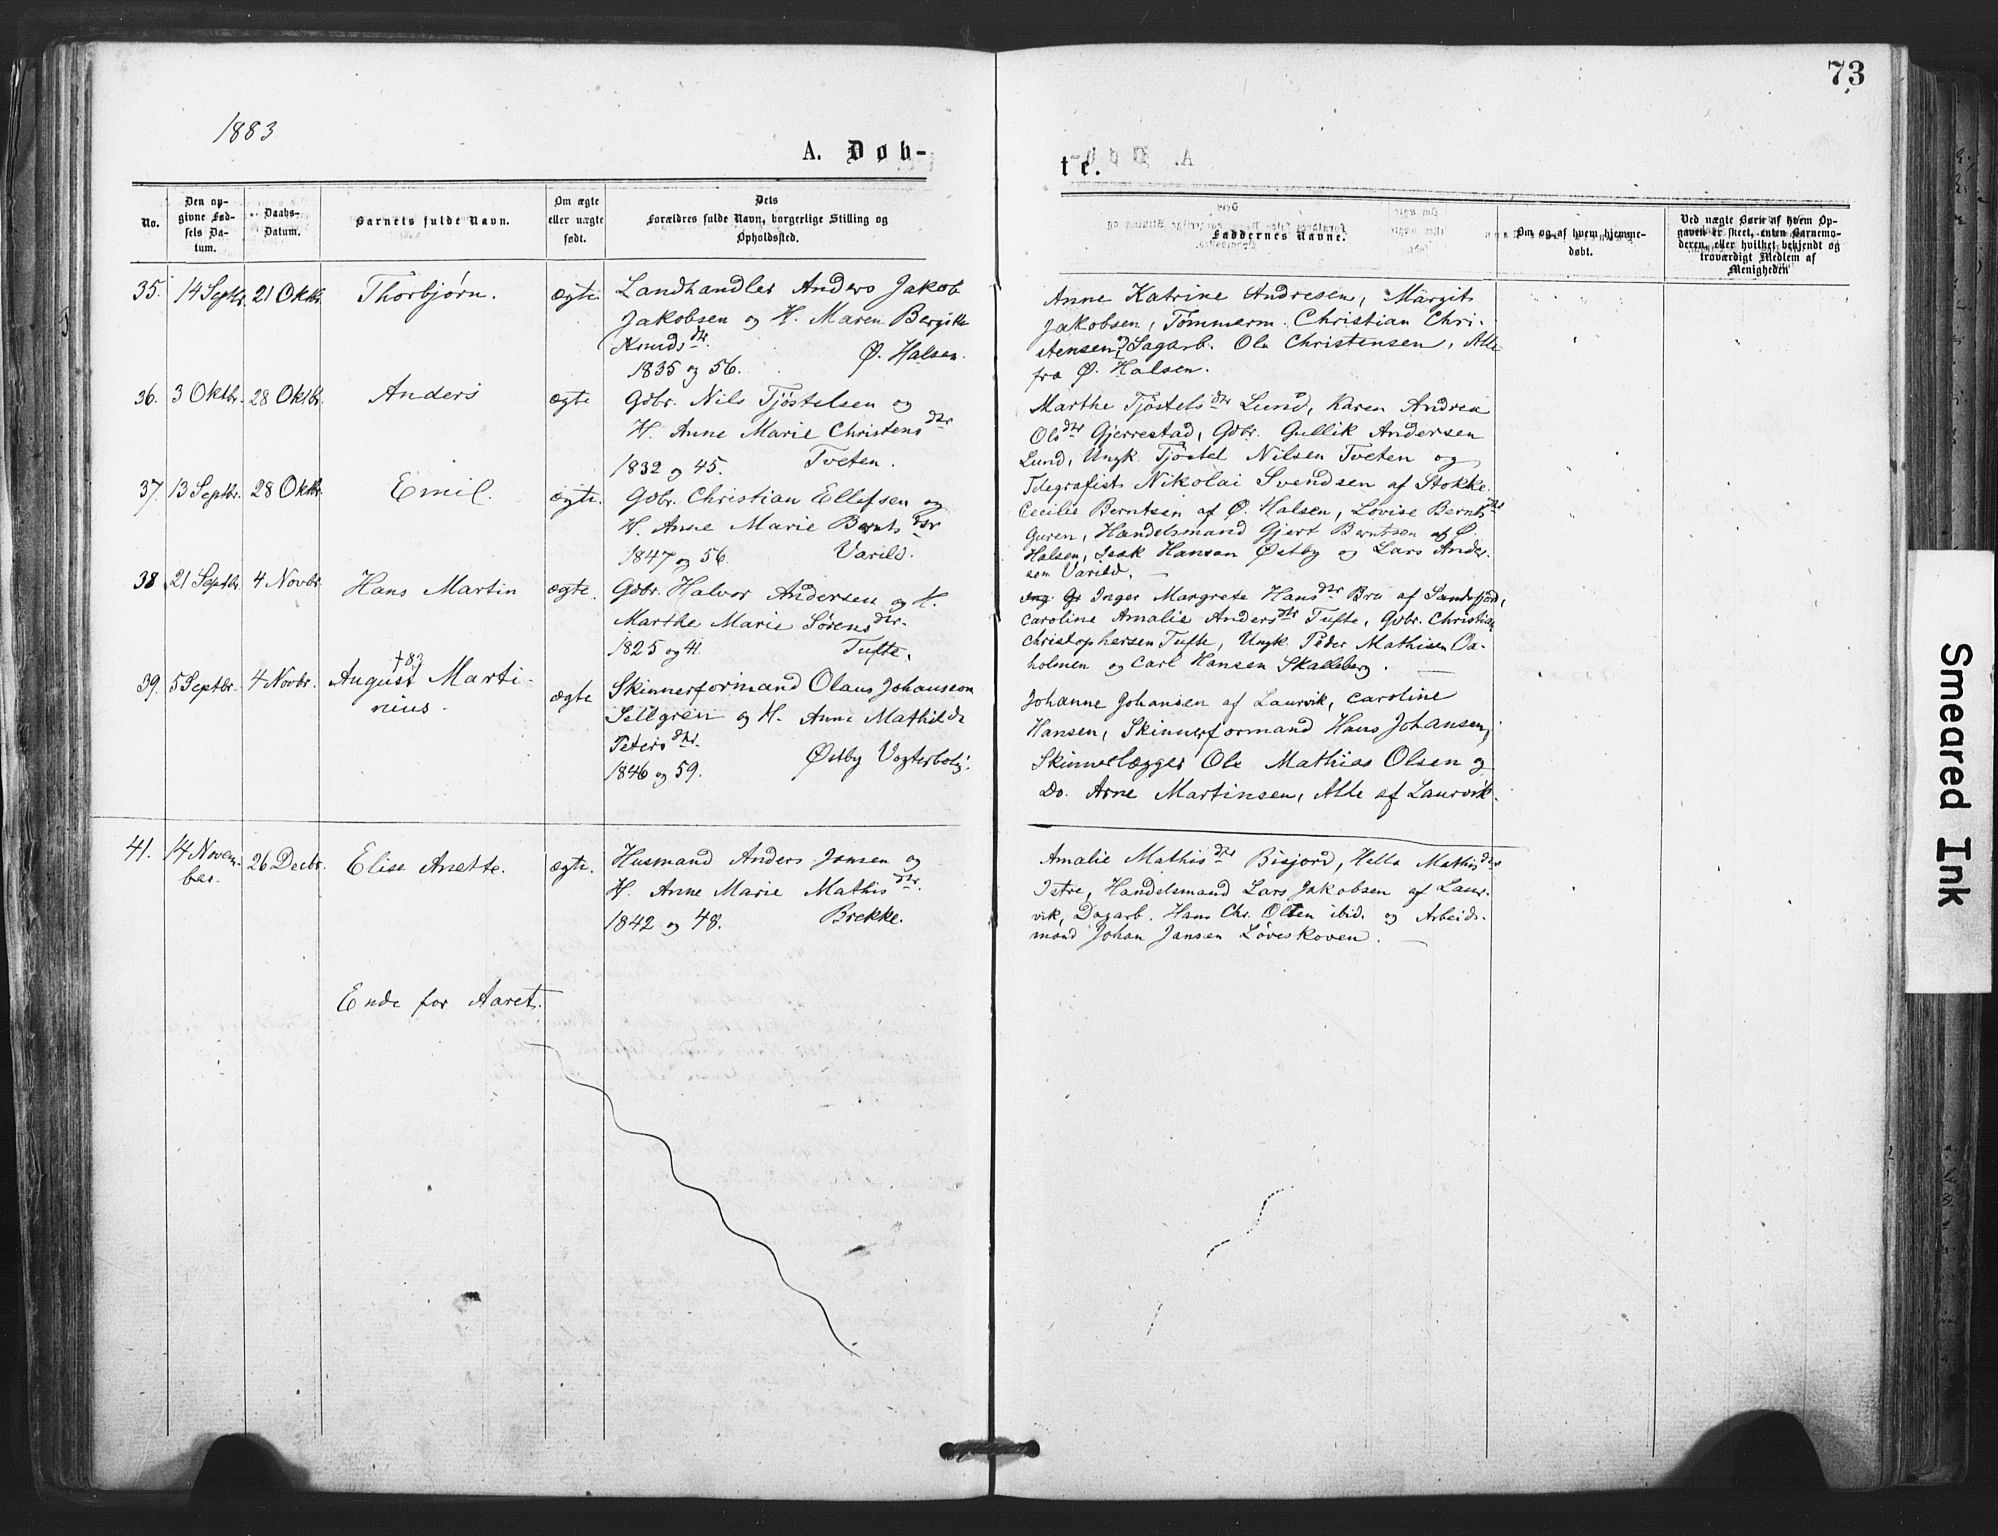 1883
73
A. Døb-
te.
No.
Den op-
givne Fød-
sels Da-
tum.
Daabs-
Datum.
Barnets fulde Navn.
Om ægte
eller uægte
født.
Dets
Forældres fulde Navn, borgerlige Stilling og
Opholdssted.
Faddernes Navne.
Om og af hvem hjemme-
døbt.
Ved uægte Børn af hvem Op-
gaven er skeet, enten Barnemo-
deren, eller hvilket bekjendt og
troværdigt Medlem af
Menigheden
35. 14 Septbr. 21 Oktbr. Thorbjørn. ægte. Landhandler Anders Jakob
Jakobsen og H. Maren Bergitte
Knudsdtr. Ø. Halsen.
1835 og 56.
Anne Katrine Andresen, Margit
Jakobsen, Tømmerm. Christian Chri-
stensen, Sagarb. Ole Christensen, Alle
fra Ø. Halsen.
36. 3 Oktbr. 28 Oktbr. Anders ægte Gdbr. Nils Tjøstelsen og
H. Anne Marie Christensdtr
1832 og 45. Tveten.
Marthe Tjøstelsdtr Lund, Karen Andrea
Olsdtr Gjerrestad, Gdbr. Gullik Andersen
Lund, Ungk. Tjøstel Nilsen Tveten og
Telegrafist Nikolai Svendsen af Stokke.
37. 13 Septbr. 28 Oktbr. Emil. ægte. Gdbr. Christian Ellefsen og
H. Anne Marie Berntsdtr
1847 og 56. Varild.
Cecilie Berntsen af Ø. Halsen, Lovise Berntsdtr
Guren, Handelsmand Gjert Berntsen af Ø
Halsen, Isak Hansen Østby og Lars Ander-
sen Varild.
38. 21 Septbr. 4 Novbr. Hans Martin ægte. Gdbr. Halvor Andersen og H.
Marthe Marie Sørensdtr.
1825 og 41. Tufte.
Inger Margrete Hansdtr Bru af Sandefjord,
Caroline Amalie Andersdtr Tufte, Gdbr. Christian
Christophersen Tufte, Ungk. Peder Mathisen Oa-
holmen og Carl Hansen Skalleberg.
39. 5 Septbr. 4 Novbr. †83
August Marti-
nius. ægte Skinnerformand Olaus Johansson
Sellgren og H. Anne Mathilde
Petersdtr.
1846 og 59. Østby Vogterbolig.
Johanne Johansen af Laurvik, Caroline
Hansen, Skinnerformand Hans Johansen,
Skinnelægger Ole Mathias Olsen og
Do. Arne Martinsen, Alle af Laurvik.
41. 14 Novem-
ber. 26 Decbr. Elise Anette. ægte. Husmand Anders Jansen og
H. Anne Marie Mathisdtr.
1842 og 48. Brekke.
Amalie Mathisdtr Bisjord, Hella Mathisdtr
Istre, Handelsmand Lars Jakobsen af Laur-
vik, Dagarb. Hans Chr. Olsen ibid. og Arbeids-
mand Johan Jansen Løveskoven.
Ende for Aaret.
Smeared Ink